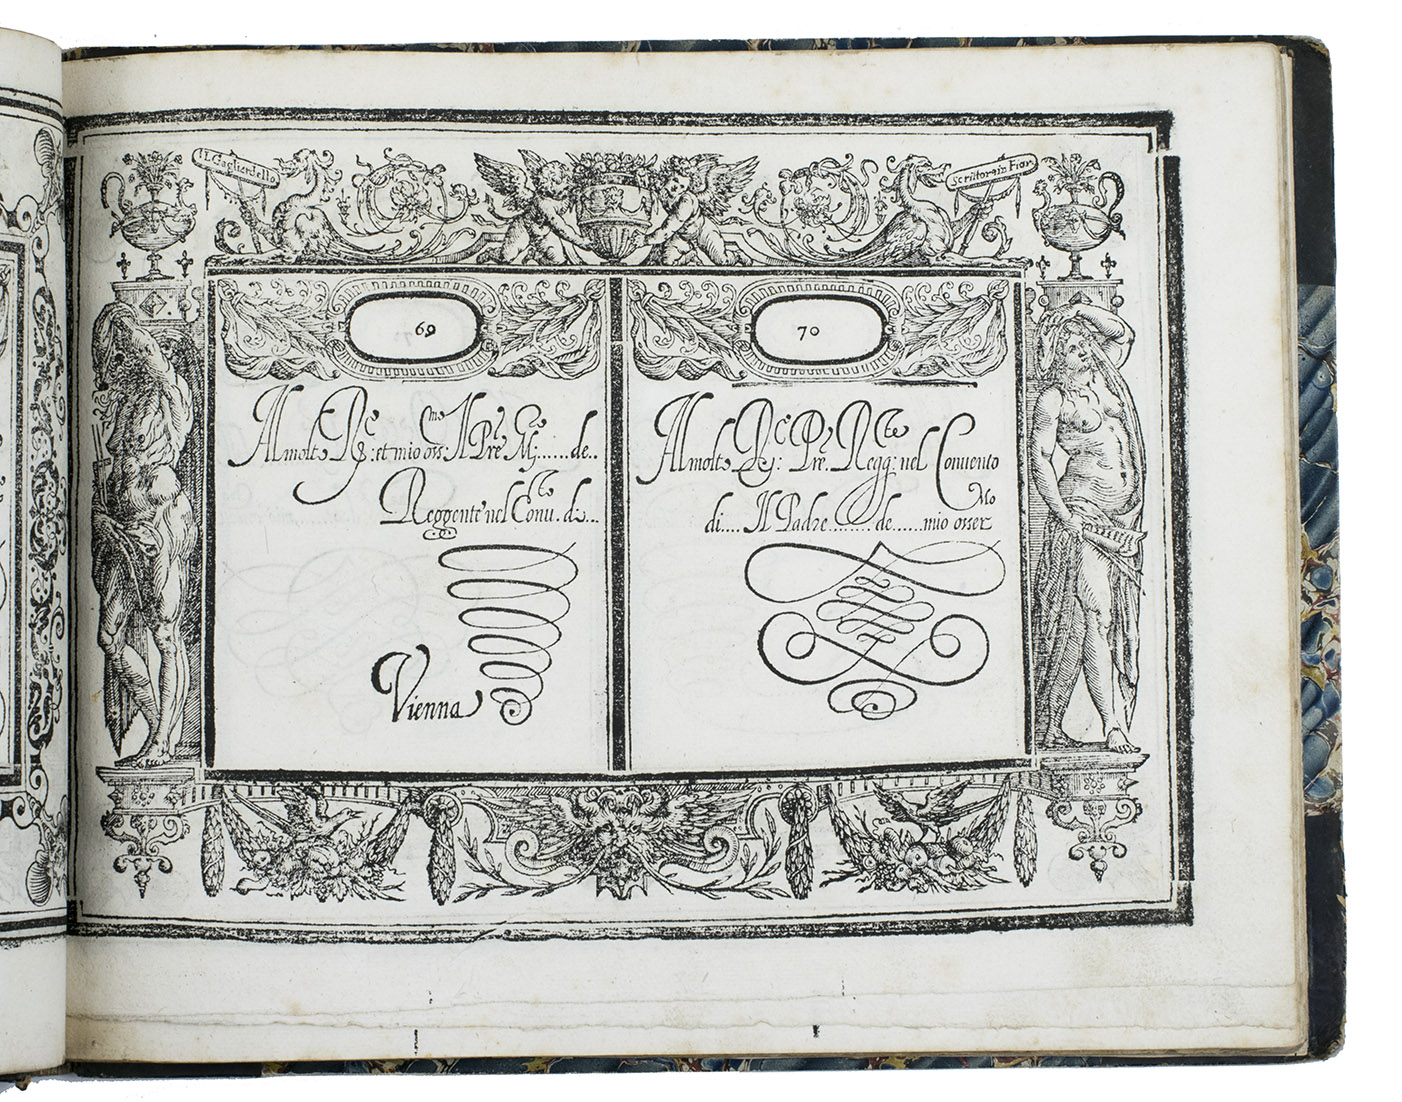 IL Gagliardello
Scrittore in Fior
69
Al molt Rę: et mio oss.mo Il Prę Mj......de..
Reggente nel Conu.to di...
Vienna
70
Al molt Rę: Prę Regg: nel Conuento
di.... Il Padre........de......mio osser Mo